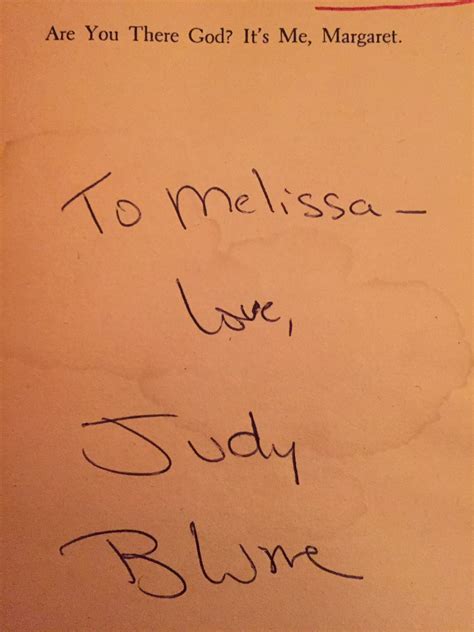 Are You There God? It's Me, Margaret.
To Melissa—
Love,
Judy
Blume